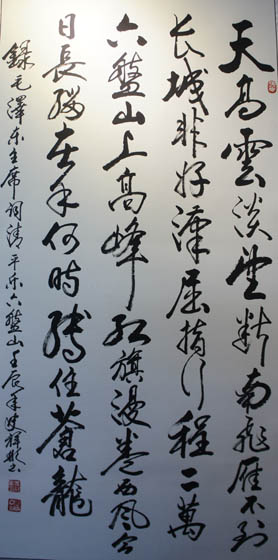 天高雲淡望断南飛雁不到
长城非好漢屈指行程二萬
六盤山上高峰红旗漫卷西风今
日長缨在手何時缚住蒼龍
録毛澤东主席词清平乐六盤山壬辰年